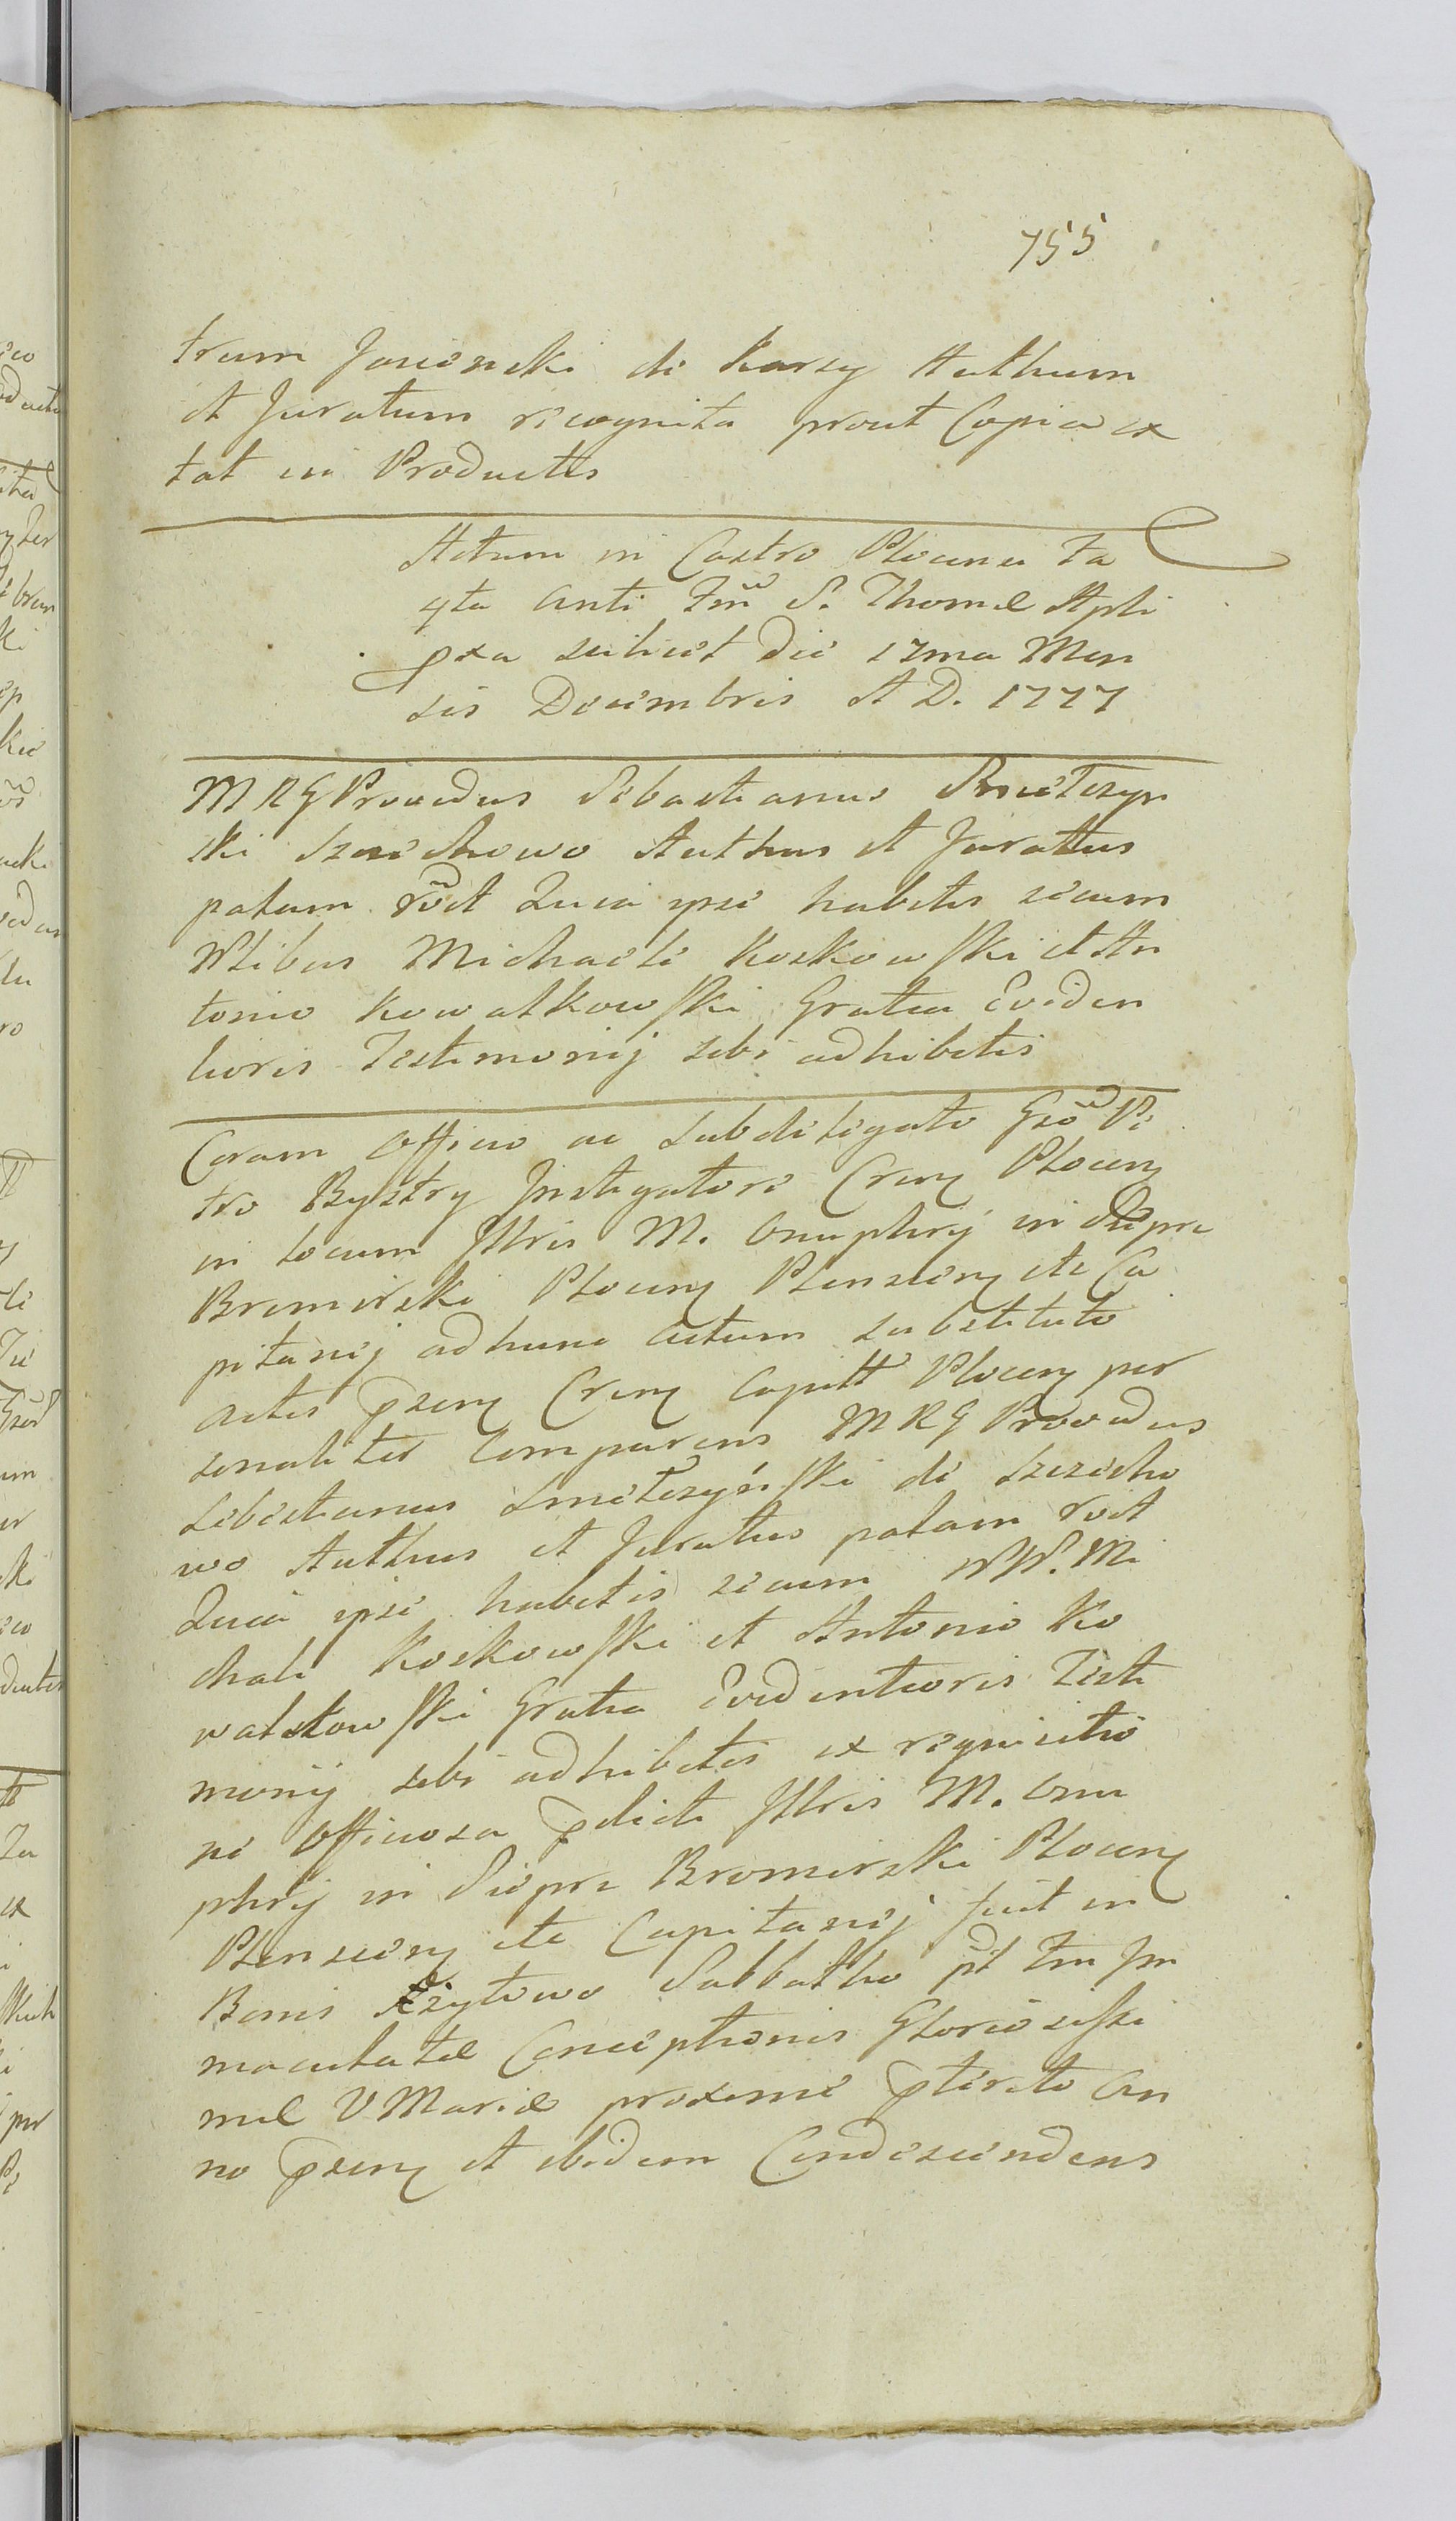 755
trum Jasienski de Karsy Authum
et Juratum recognita prout Copia ex
tat in Productis
Actum in Castro Plocensi fa
4ta Anti Fm̃ S. Thomæ Apli
pxa scilicet die 17ma Men
sis Decembris A D. 1777
MRG Providus Sebastianus Smietszyn
ski Szczechowo Authus et Juratus
palam rõct Quia ipse habitis secum
Nblibus Michaele Koskowski et An
tonio Kowalkowski Gratia Eviden
tioris Testimonij sibi adhibitis
Coram Officio ac Subdeligato Gsõ Pe
tro Bystry Instigatore Cren̄ Plocen̄
in locum Illris M. Onuphrij in Siepre
Bromirski Plocen̄ Plenscien̄ etc Ca
pitanij adhunc Actum substituto
Actis pñsen̄ Cren̄ Capitt Plocen̄ per
sonaliter Comparens MRG Providus
Sebestianus Smietszyński de Szczecho
wo Authus et Juratus palam rõct
Quia ipse habitis secum NN. Mi
chale Koskowski et Antonio Ko
walkowski Gratia Evidentioris Testi
monij sibi adhibitis ex requisitio
ne Officiosa pdicti Illris M. Onu
phrij in Siepre Bromirski Plocen̄
Plenscien̄ etc Capitanij fuit in
Bonis Szytowo Sabbatho pt̄ Fm Im
maculatæ Conceptionis Gloriosissi
mæ V Mariæ proxime pterito An
no pñsen̄ et ibidem Condescendens